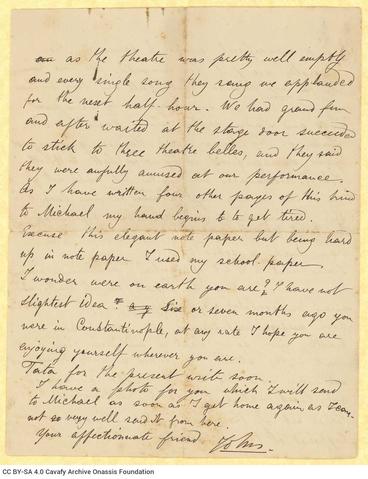 as the theatre was pretty well empty
and every single song they sang we applauded
for the next half-hour. We had grand fun
and after waited at the stage door succeeded
to stick to three theatre belles, and they said
they were awfully amused at our performance.
As I have written four other pages of this kind
to Michael my hand begins to to get tired.
Excuse this elegant note paper but being hard
up in note paper I used my school paper.
I wonder were on earth you are? I have not
slightest idea. Six or seven months ago you
were in Constantinople, at any rate I hope you are
enjoying yourself wherever you are.
Tata for the present write soon.
I have a photo for you which I will send
to Michael as soon as I get home again as I can
not so very well send it from here.
Your affectionnate friend John.
CC BY-SA 4.0 Cavafy Archive Onassis Foundation